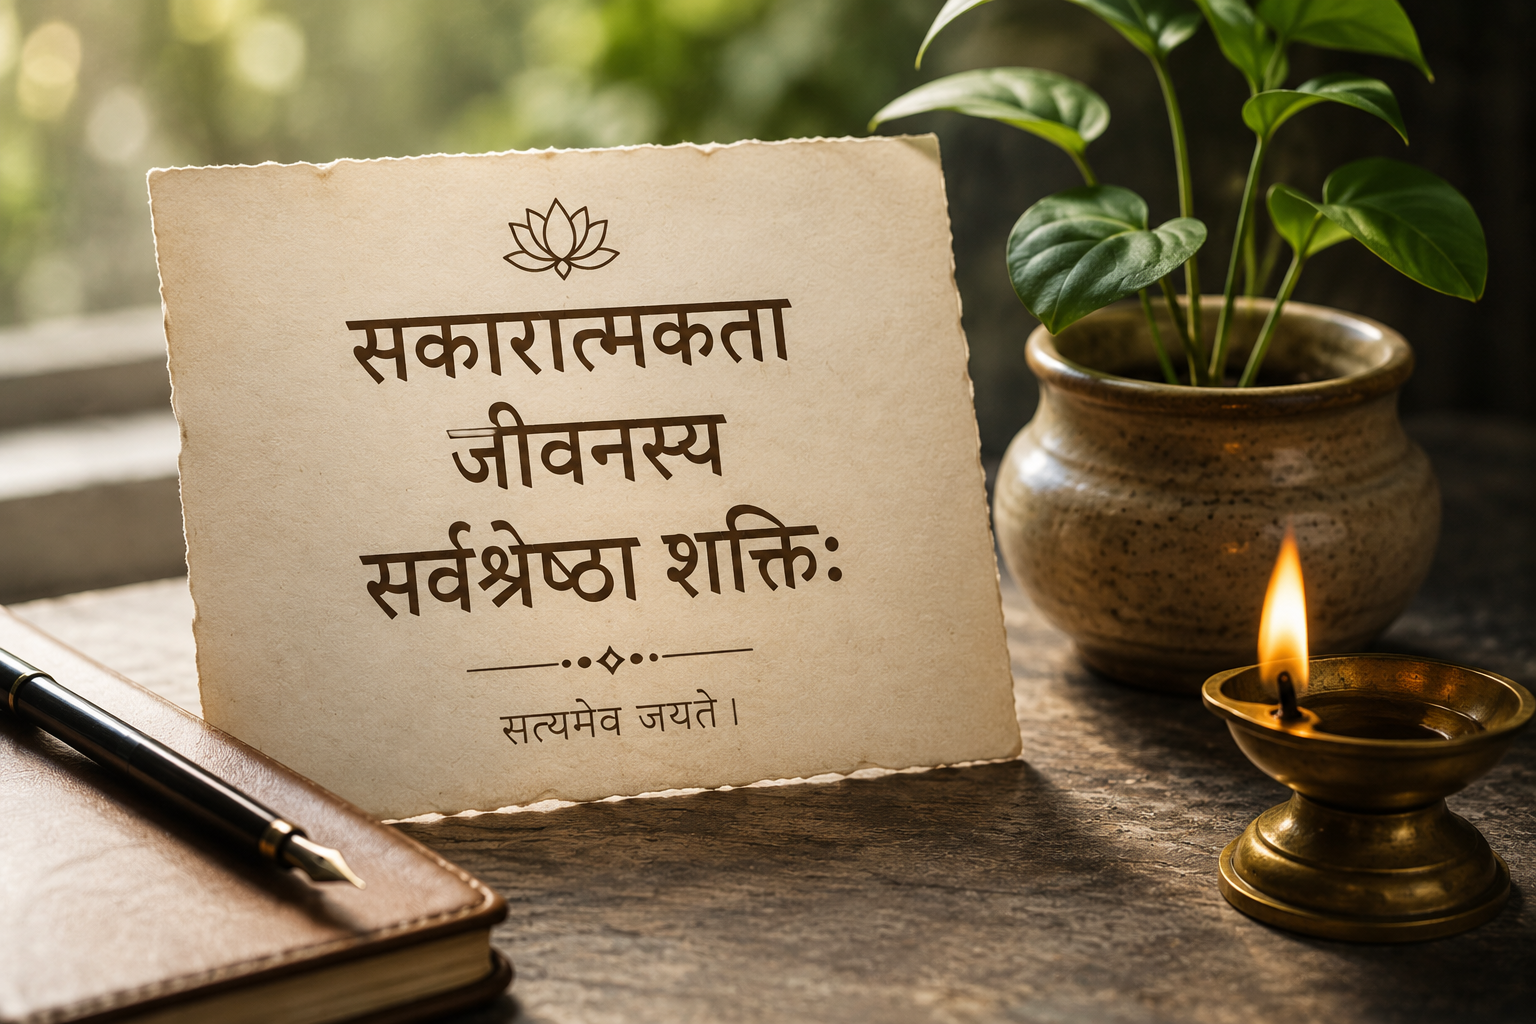 सकारात्मकता
जीवनस्य
सर्वश्रेष्ठा शक्तिः
सत्यमेव जयते।